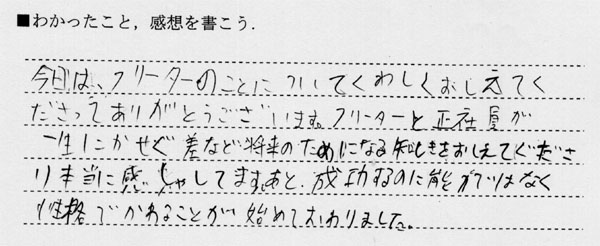 ■わかったこと，感想を書こう．
今日は、フリーターのことについてくわしくおしえてく
ださってありがとうございます。フリーターと正社員が
一生にかせぐ差など将来のためになる知しきをおしえてくださ
り本当に感しゃしてます。あと、成功するのに能力ではなく
性格でかわることが始めてわかりました。